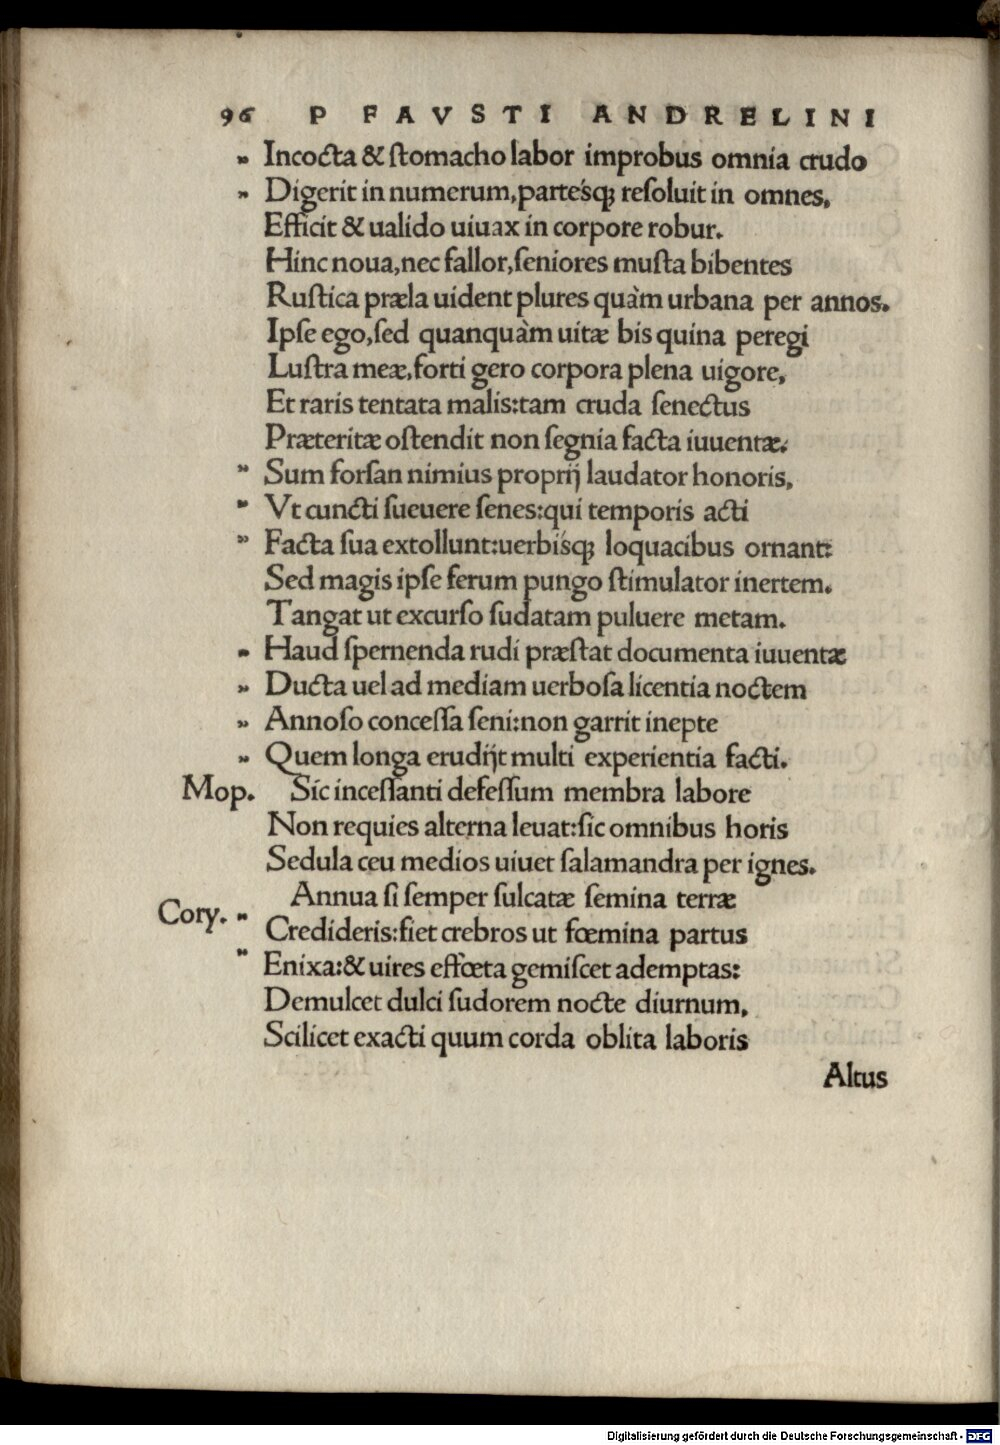 96 P FAVSTI ANDRELINI
» Incocta & ſtomacho labor improbus omnia crudo
» Digerit in numerum, parteſq́; reſoluit in omnes,
Efficit & ualido uiuax in corpore robur.
Hinc noua, nec fallor, ſeniores muſta bibentes
Ruſtica præla uident plures quàm urbana per annos.
Ipſe ego, ſed quanquàm uitæ bis quina peregi
Luſtra meæ, forti gero corpora plena uigore,
Et raris tentata malis: tam cruda ſenectus
Præteritæ oſtendit non ſegnia facta iuuentæ.
» Sum forſan nimius proprij laudator honoris,
» Vt cuncti ſueuere ſenes: qui temporis acti
» Facta ſua extollunt: uerbiſq́; loquacibus ornant:
Sed magis ipſe ferum pungo ſtimulator inertem.
Tangat ut excurſo ſudatam puluere metam.
» Haud ſpernenda rudi præſtat documenta iuuentæ
» Ducta uel ad mediam uerboſa licentia noctem
» Annoſo conceſſa ſeni: non garrit inepte
» Quem longa erudijt multi experientia facti.
Mop. Sic inceſſanti defeſſum membra labore
Non requies alterna leuat: ſic omnibus horis
Sedula ceu medios uiuet ſalamandra per ignes.
Annua ſi ſemper ſulcatæ ſemina terræ
Cory. » Credideris: fiet crebros ut fœmina partus
» Enixa: & uires effœta gemiſcet ademptas:
Demulcet dulci ſudorem nocte diurnum,
Scilicet exacti quum corda oblita laboris
Altus
Digitalisierung gefördert durch die Deutsche Forschungsgemeinschaft - DFG